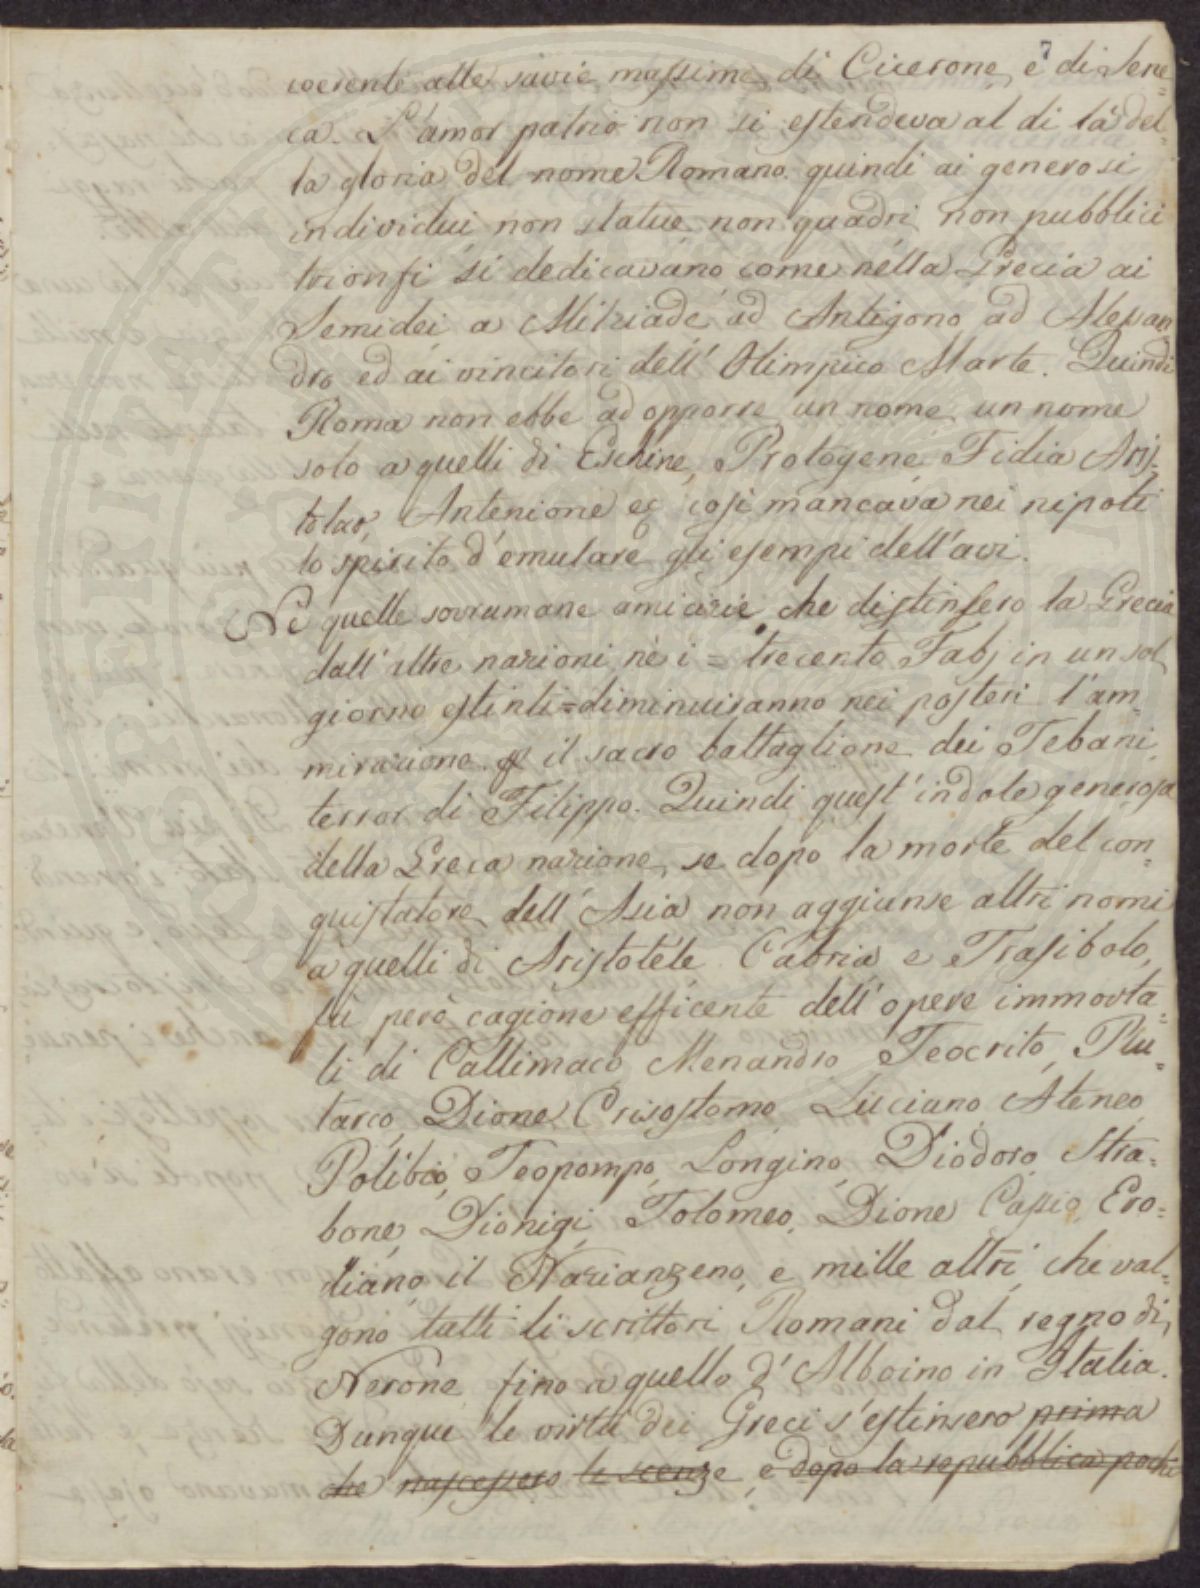 7
coerente alle savie massime di Cicerone, e di Sene=
ca. L'amor patrio non si estendeva al di là del=
la gloria del nome Romano. quindi ai generosi
individui non statue, non quadri non pubblici
trionfi si dedicavano, come nella Grecia ai
Semidei a Milziade ad Antigono ad Alessan
dro ed ai vincitori dell' Olimpico Marte. Quindi
Roma non ebbe ad opporre un nome, un nome
solo a quelli di Eschine, Protogene Fidia Aris=
tolao, Antenione ec così mancava nei nipoti
lo spirito d'emulare gli esempi dell'avi.
Nè quelle sovrumane amicizie che distinsero la Grecia
dall'altre nazioni nè i = trecento Fabj in un sol
giorno estinti = diminuiranno nei posteri l'am=
mirazione il sacro battaglione dei Tebani
terror di Filippo. Quindi quest'indole generosa
della Greca nazione, se dopo la morte del con=
quistatore dell'Asia non aggiunse altri nomi
a quelli di Aristotele Cabria e Trasibolo,
fu però cagione efficente dell'opere immorta=
li di Callimaco Menandro Teocrito, Plu=
tarco, Dione Crisostomo, Luciano, Ateneo
Polibio, Teopompo, Longino, Diodoro, Stra=
bone, Dionigi, Tolomeo, Dione Cassio, Ero=
diano, il Nazianzeno, e mille altri, che val=
gono tutti li scrittori Romani dal regno di
Nerone fino a quello d'Alboino in Italia.
Dunque le virtù dei Greci s'estinsero prima
che nascessero le scenze, e dopo la repubblica pochi